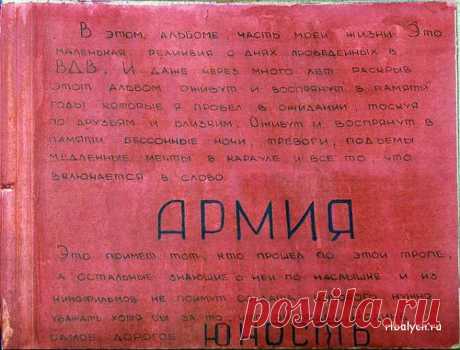 В ЭТОМ, АЛЬБОМЕ ЧАСТЬ МОЕЙ ЖИЗНИ. ЭТО
МАЛЕНЬКАЯ РЕЛИКВИЯ О ДНЯХ ПРОВЕДЕННЫХ В
ВДВ. И ДАЖЕ ЧЕРЕЗ МНОГО ЛЕТ РАСКРЫВ
ЭТОТ АЛЬБОМ ОЖИВУТ И ВОСПРЯНУТ В ПАМЯТИ
ГОДЫ КОТОРЫЕ Я ПРОВЕЛ В ОЖИДАНИИ, ТОСКУЯ
ПО ДРУЗЬЯМ И БЛИЗКИМ. ОЖИВУТ И ВОСПРЯНУТ В
ПАМЯТИ БЕССОННЫЕ НОЧИ, ТРЕВОГИ, ПОДЪЕМЫ
МЕДЛЕННЫЕ МЕЧТЫ В КАРАУЛЕ И ВСЕ ТО, ЧТО
ВКЛЮЧАЕТСЯ В СЛОВО
АРМИЯ
ЭТО ПОЙМЕТ ТОТ, КТО ПРОШЕЛ ПО ЭТОЙ ТРОПЕ,
А ОСТАЛЬНЫЕ ЗНАЮЩИЕ О НЕЙ ПО НАСЛЫШКЕ И ИЗ
КИНОФИЛЬМОВ НЕ ПОЙМУТ НУЖНО
УВАЖАТЬ ХОТЯ БЫ ЗА ТО,
САМОЕ ДОРОГОЕ ЮНОСТЬ
postila.ru
ribalych.ru